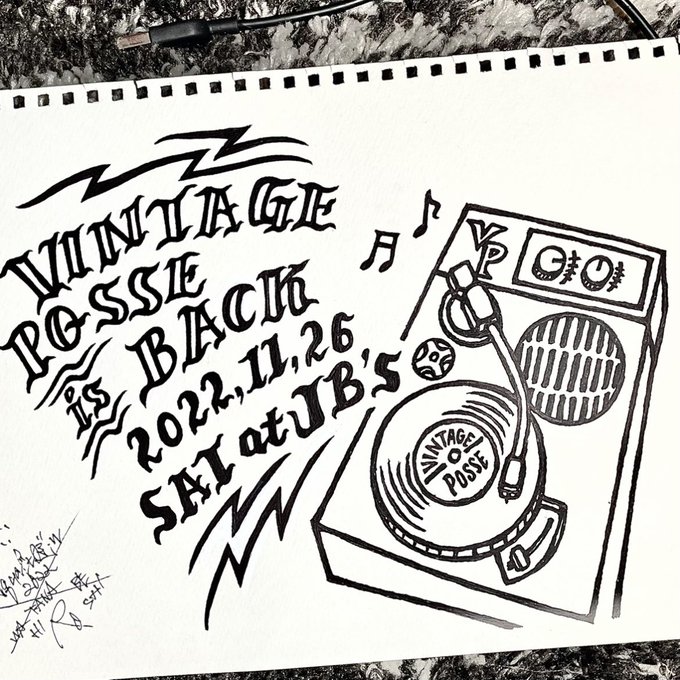 VINTAGE
POSSE
is BACK
2022,11,26
SAT at JB'S
VP
VINTAGE
POSSE
2022